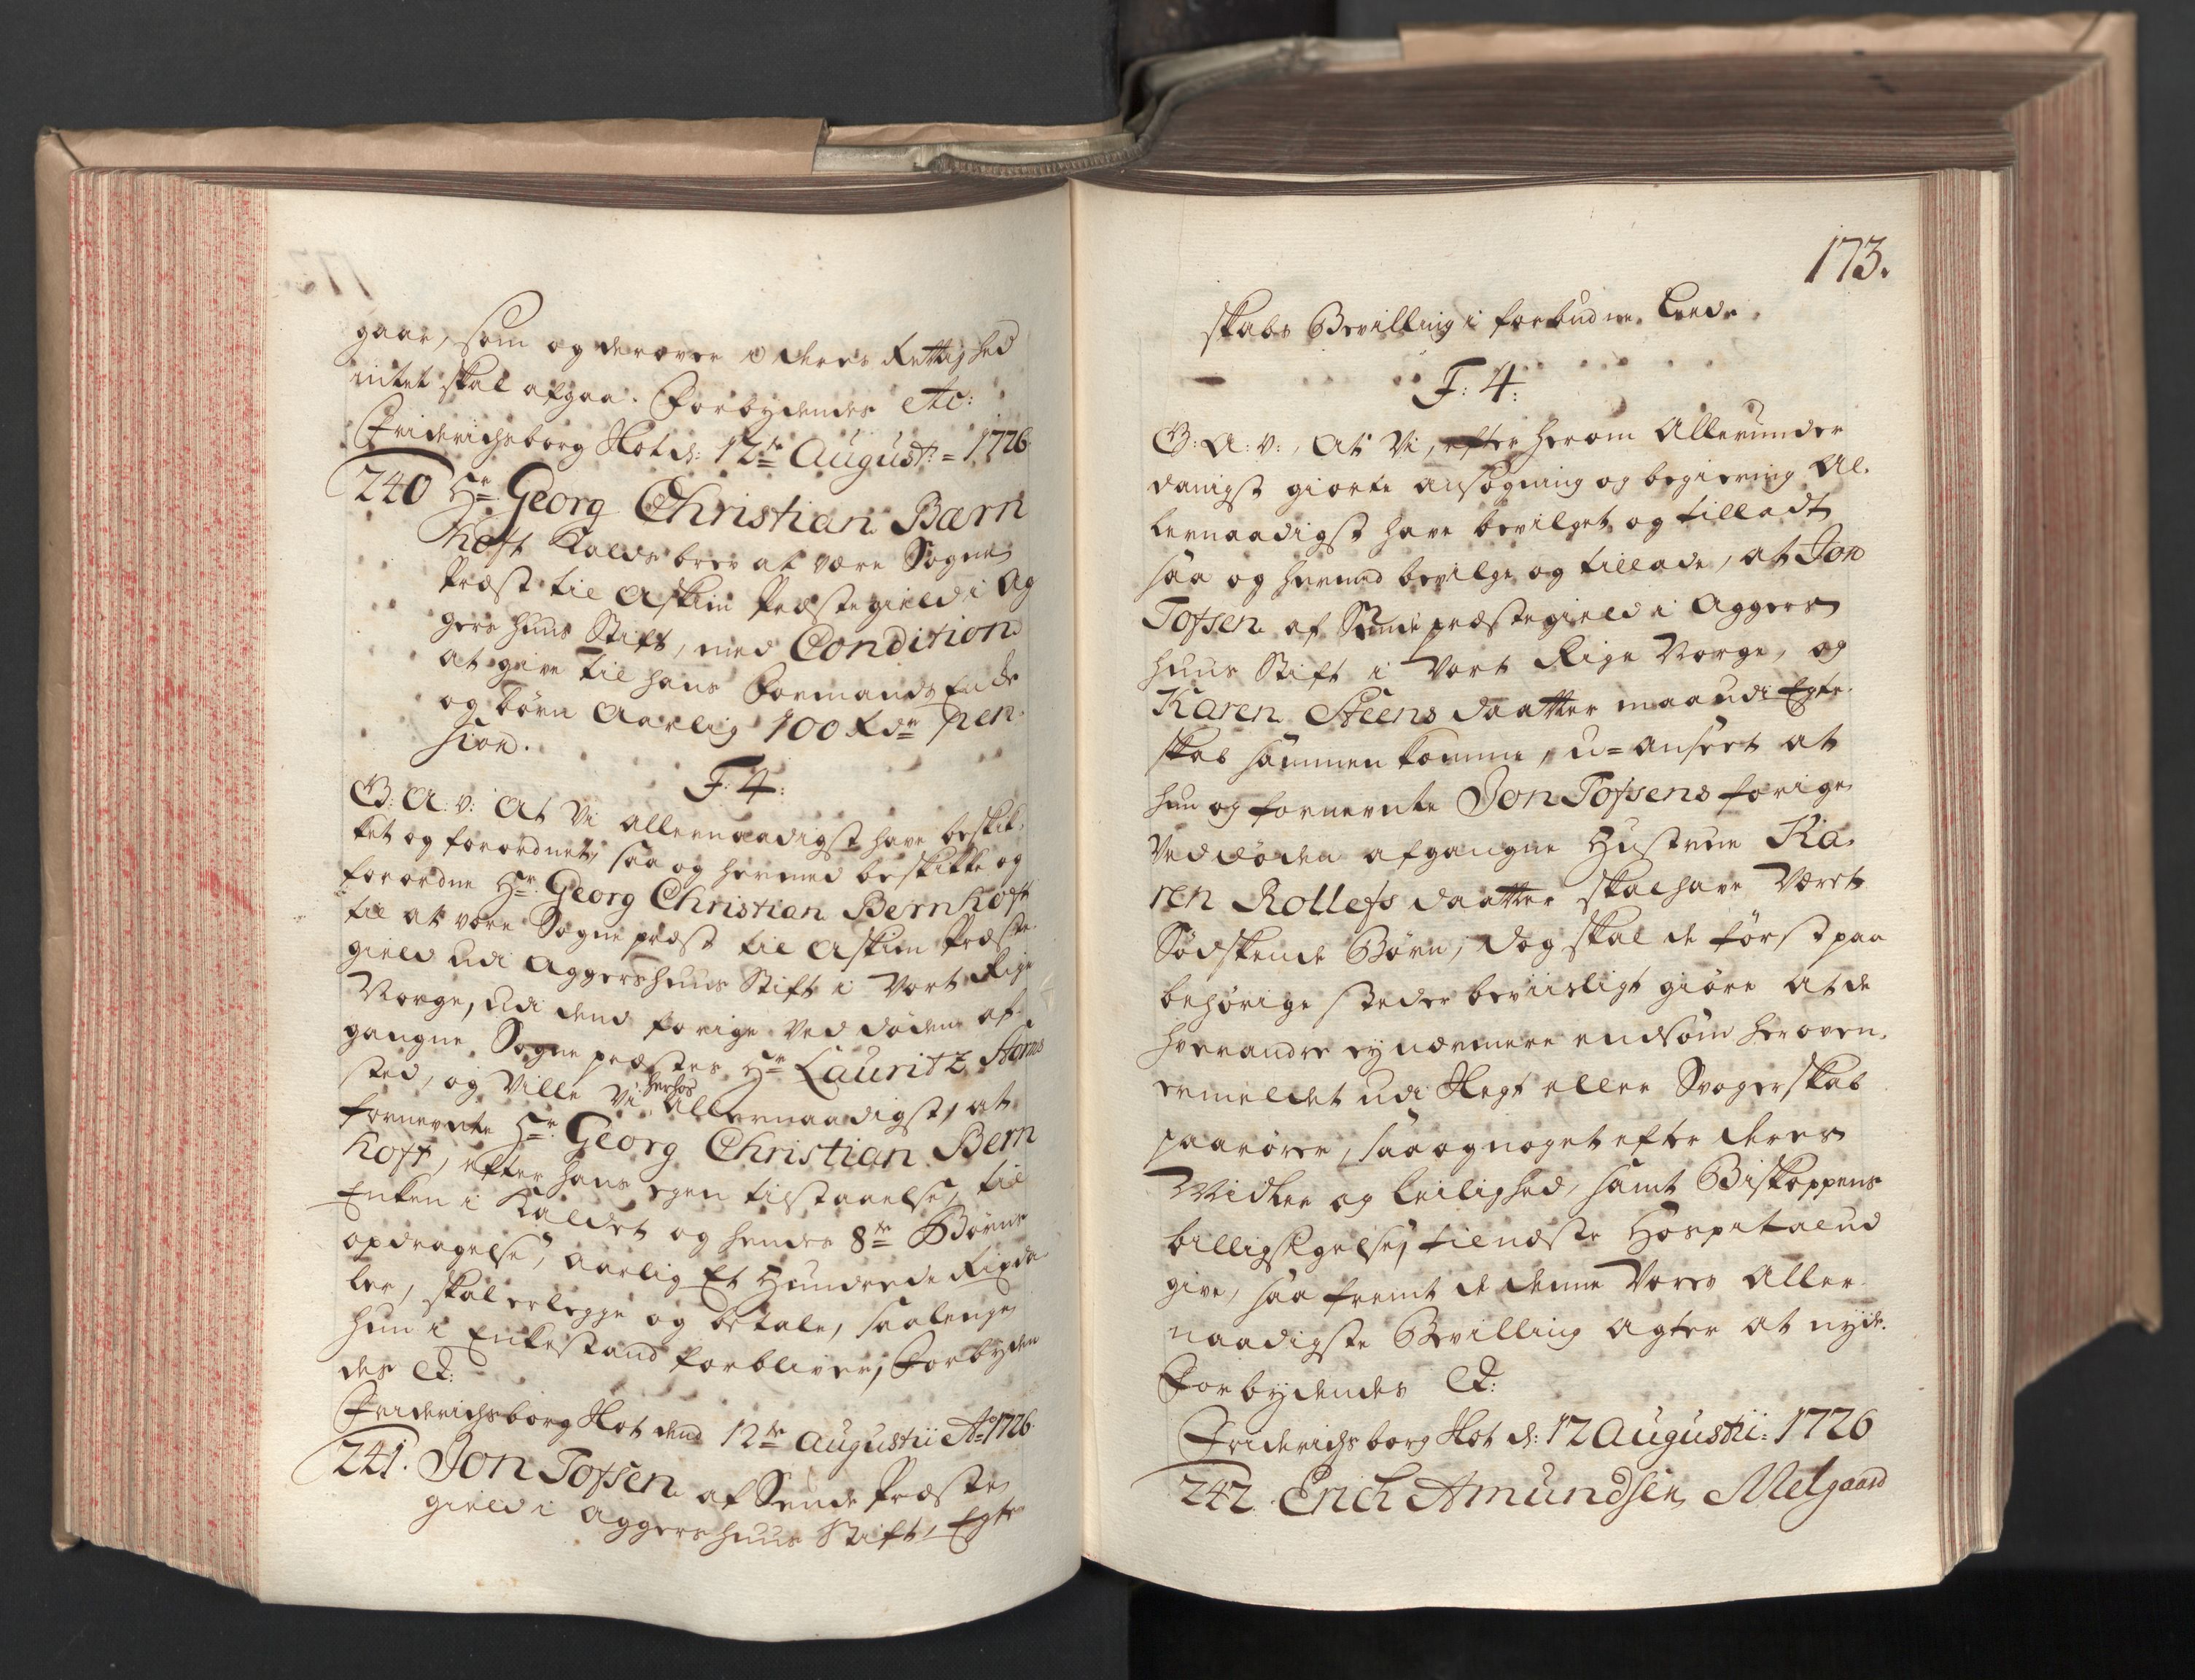 gaar, som og derover i deres Rettighed
intet skal afgaa. Forbydendes etc:
Friderichsborg Slot d: 12te August: 1726
240 Hr Georg Christian Bærn
hoft Kalds brev at være Sogne
Præst til Askim Præstegield i Ag
gershuus Stift, med Condition
at give til hans Formands Enke
og børn Aarlig 100 Rdr pen-
sion.
F: 4:
G: A: V: At Vi allernaadigst have beskik-
ket og forordnet, saa og hermed beskikke og
forordne Hr Georg Christian Bernhoft
til at være Sognepræst til Askim Præste-
gield udi Aggershuus Stift i Vort Rige
Norge, udi dend forige ved døden af-
gangne Sognepræstes Hr Lauritz Storms
sted, og Ville Vi herhos allernaadigst, at
fornevnte Hr Georg Christian Bern
hoft, efter hans egen tilstaaelse, til
Enken i Kaldet og hendes 8te Børns
opdragelse, aarlig Et Hundrede Rixda-
ler, skal erlegge og betale, saalenge
hun i Enkestand forbliver, Forbyden
des etc:
Friderichsborg Slot dend 12te Augustii Ao 1726
241. Jon Tofsen af Sende Præste
gield i Aggershuus Stift, Egte
173.
skabs Bevilling i forbudne Leede.
F: 4:
G: A: V:, At Vi, efter herom Allerunder
danigst giorte ansøgning og begiering Al-
lernaadigst have bevilget og tilladt
saa og hermed bevilge og tillade, at Jon
Tofsen af Sende præstegield i Aggers
huus Stift i Vort Rige Norge, og
Karen Steens daatter maa udi Egte-
skab sammen komme, u=anseet at
hun og fornevnte Jon Tofsens forige
Ved døden afgangne Hustrue Ka-
ren Rollefs daatter skal have Været
Sødskende Børn, dog skal de først paa
behørige steder beviisligt giøre at de
hverandre ey nærmere end som heroven-
ermeldet udi Slegt eller Svogerskab
paarører, saa og noget efter deres
Midler og leilighed, samt Biskoppens
billigsigelse, til næste Hospital ud
give, saa fremt de denne Vores Aller-
naadigste Bevilling agter at nyde.
Forbydendes etc:
Friderichsborg Slot d: 12 Augustii: 1726
242. Erich Amundsen Melgaard